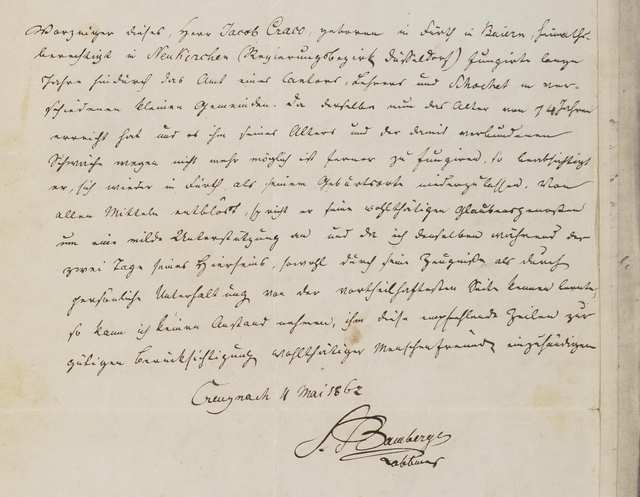 Vorzeiger dieses, Herr Jacob Craco, geboren in Fürth in Baiern, heimaths-
berechtigt in Neukirchen (Regierungsbezirk Düsseldorf) fungirte lange
Jahre hindurch das Amt eines Cantors, Lehrers und Schochet in ver-
schiedenen kleinen Gemeinden. Da derselbe nun das Alter von 74 Jahren
erreicht hat und es ihm seines Alters und der damit verbundenen
Schwäche wegen nicht mehr möglich ist ferner zu fungiren, so beabsichtigt
er, sich wieder in Fürth, als seinem Geburtsorte niederzulassen. Von
allen Mitteln entblöst, spricht er seine wohlthätigen Glaubensgenossen
um eine milde Unterstützung an und da ich denselben während der
zwei Tage seines Hierseins, sowohl durch seine Zeugnisse als durch
persönliche Unterhaltung von der vortheilhaftesten Seite kennen lernte,
so kann ich keinen Anstand nehmen, ihm diese empfehlende Zeilen zur
gütigen Berücksichtigung wohlthätiger Menschenfreunde einzuhändigen
Creuznach 11 Mai 1862
S. Bamberger
Rabbiner